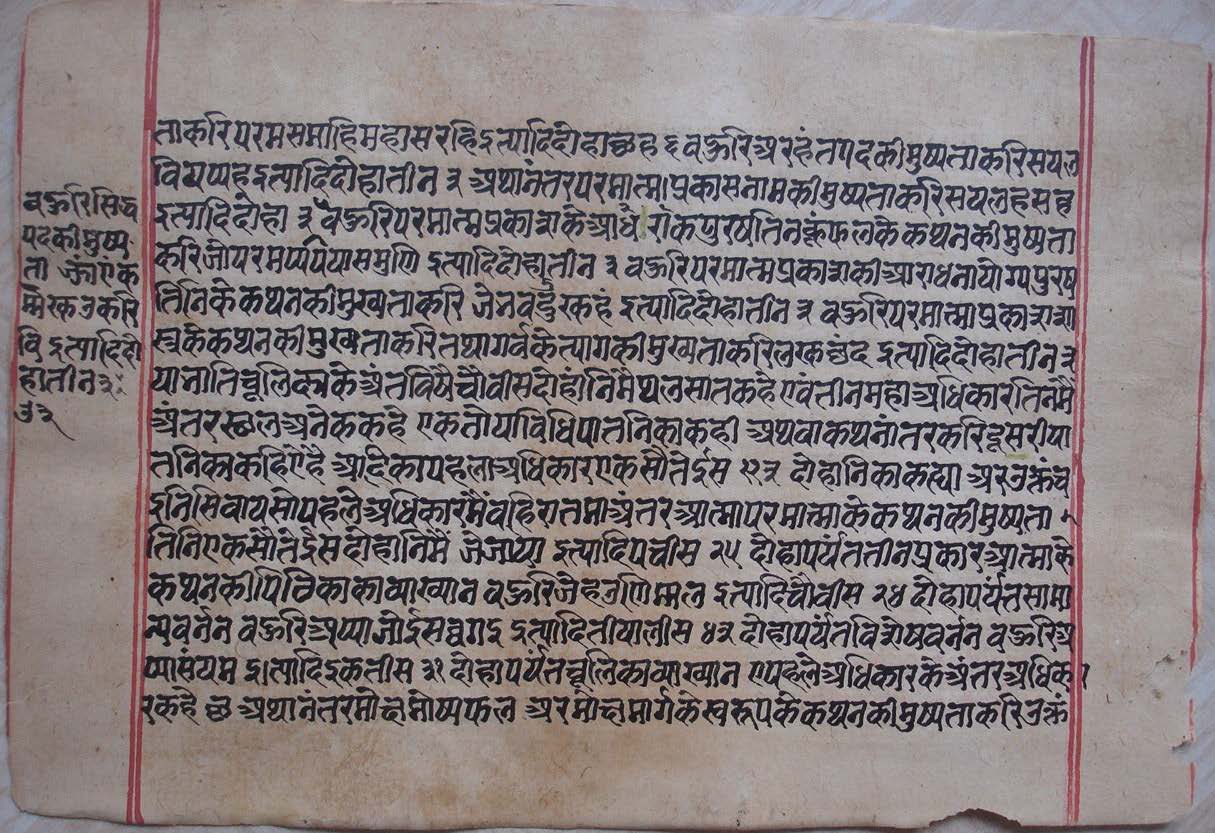 ताकरिपरमसमाहिमहासरहिइत्यादिदोहाछह ६ वऊरिअरहंतपदकीमुष्यताकरिसयल
वियप्पहइत्यादिदोहातीन ३ अथानंतरपरमात्माप्रकासनामकीमुष्यताकरिसयलहसह
इत्यादिदोहा ३ वऊरिपरमात्मप्रकाशके कपुरषतिनकूंफलकेकथनकीमुष्यता
करिजोपरमप्पयपयासमुणि इत्यादिदोहातीन ३ वऊरिपरमात्मप्रकाशकीआराधनायोग्यपुरष
तिनिकेकथनकीमुख्यताकरि जेनवदुरकहं इत्यादिदोहातीन ३ वऊरिपरमात्माप्रकाशशा
स्त्रकेकथनकीमुख्यताकरितथागर्वकेत्यागकीमुख्यताकरिलरकछंद इत्यादिदोहातीन ३
याभातिचूलिकाकेअंतविषैचौवीसदोहांनिमैथलसातकहे एवंतीनमहाअधिकारतिनमै
अंतरस्छलअनेककहै एकतोयाविधिपातनिकाकही अथवाकथनांतरकरिदूसरीपा
तनिकाकहिऐहै आदिकापहलाअधिकारएकसौतेईस १२३ दोहानिकाकह्या अरउक्तंच
इनिसिवायसोपहलेअधिकारमैवहिरातमाअंतरआत्मापरमात्माकेकथनकीमुष्यता
तिनिएकसौतेईसदोहानिमै जेजाया इत्यादिपचीस २५ दोहापर्यंततीनप्रकारआत्माके
कथनकीपिठिकाकाव्याख्यान वऊरिजेहउणिम्मल इत्यादिचौवीस २४ दोहापर्यंतसामा
न्यवर्नन वऊरिअप्पाजोईसव्वगइ इत्यादितीयालीस ४३ दोहापर्यंतविशेषवर्नन वऊरिअ
प्पासंयम इत्यादिइकतीस ३१ दोहापर्यंतचूलिकाव्याख्यान एपहलेअधिकारकेअंतरअधिका
रकहै छ अथानंतरमोक्षमोष्यफल अरमोक्षमार्गकेस्वरूपकेकथनकीमुष्यताकरिउक्तं
वऊरिसिद्ध
पदकीमुष्य
ता
करि
वि इत्यादिदो
हातीन ३